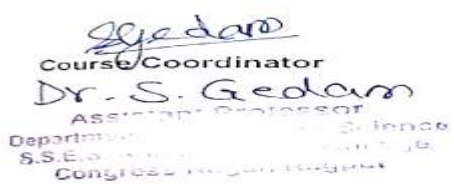 SGedam
Course Coordinator
Dr. S. Gedam
Assistant Professor
Science
S.S.E.S.
Congress Nagar, Nagpur